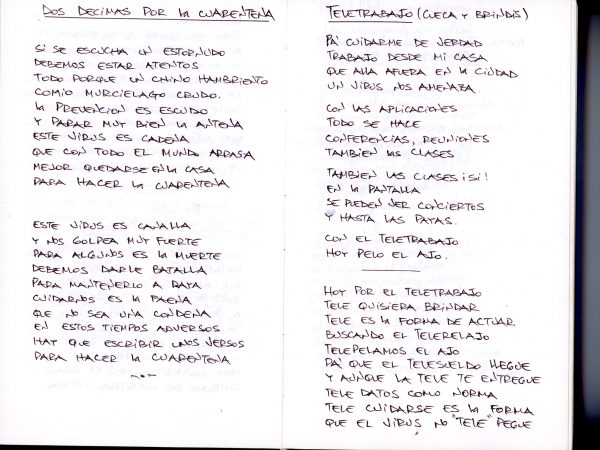 DOS DECIMAS POR LA CUARENTENA
SI SE ESCUCHA UN ESTORNUDO
DEBEMOS ESTAR ATENTOS
TODO PORQUE UN CHINO HAMBRIENTO
COMIO MURCIELAGO CRUDO.
LA PREVENCION ES ESCUDO
Y PARAR MUY BIEN LA ANTENA
ESTE VIRUS ES CADENA
QUE CON TODO EL MUNDO ARRASA
MEJOR QUEDARSE EN LA CASA
PARA HACER LA CUARENTENA
ESTE VIRUS ES CANALLA
Y NOS GOLPEA MUY FUERTE
PARA ALGUNOS ES LA MUERTE
DEBEMOS DARLE BATALLA
PARA MANTENERLO A RAYA
CUIDARNOS ES LA FAENA
QUE NO SEA UNA CONDENA
EN ESTOS TIEMPOS ADVERSOS
HAY QUE ESCRIBIR UNOS VERSOS
PARA HACER LA CUARENTENA
TELETRABAJO (CUECA Y BRINDIS)
PA' CUIDARME DE VERDAD
TRABAJO DESDE MI CASA
QUE ALLA AFUERA EN LA CIUDAD
UN VIRUS NOS AMENAZA
CON LAS APLICACIONES
TODO SE HACE
CONFERENCIAS, REUNIONES
TAMBIEN LAS CLASES
TAMBIEN LAS CLASES ¡SI!
EN LA PANTALLA
SE PUEDEN VER CONCIERTOS
Y HASTA LAS PAYAS.
CON EL TELETRABAJO
HOY PELO EL AJO.
HOY POR EL TELETRABAJO
TELE QUISIERA BRINDAR
TELE ES LA FORMA DE ACTUAR
BUSCANDO EL TELERELAJO
TELEPELAMOS EL AJO
PA' QUE EL TELESUELDO LLEGUE
Y AUNQUE LA TELE TE ENTREGUE
TELE DATOS COMO NORMA
TELE CUIDARSE ES LA FORMA
QUE EL VIRUS NO "TELE" PEGUE